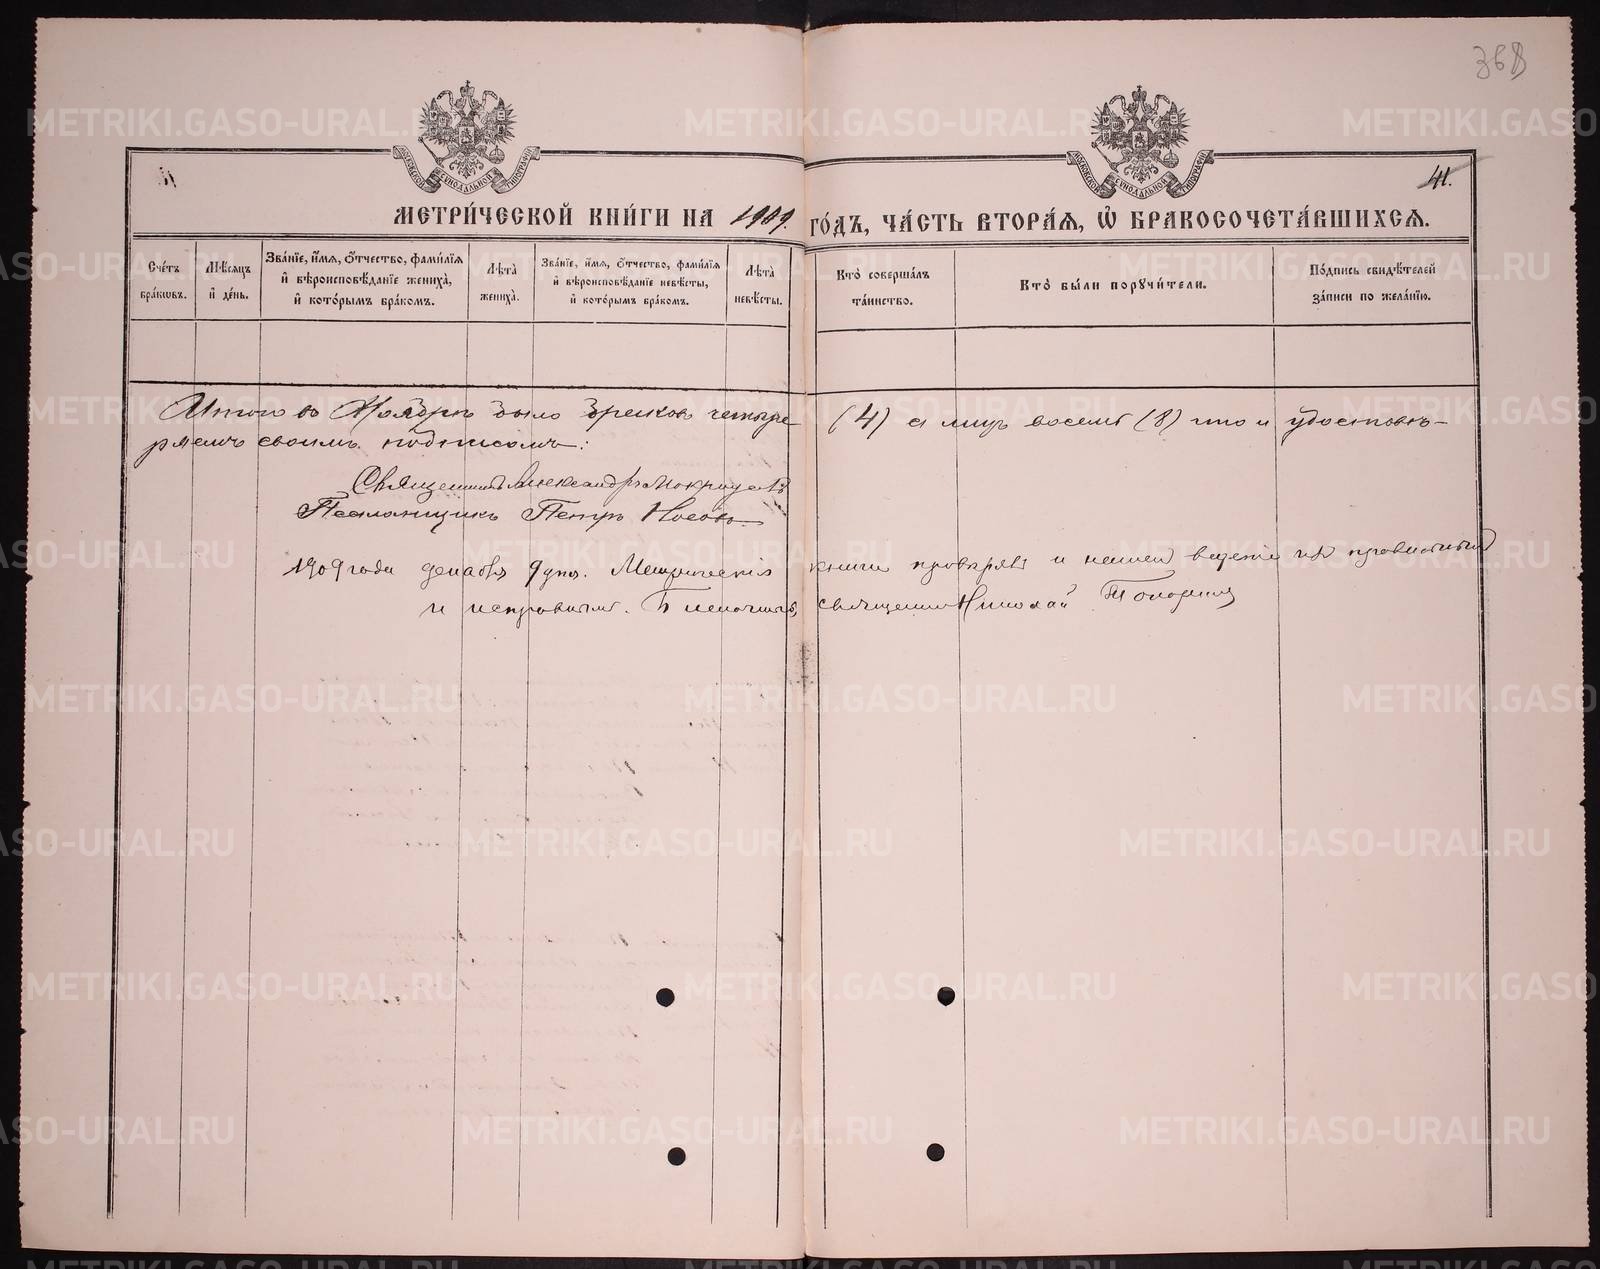 368
41.
МОСКОВСКОЙ СѴНОДАЛЬНОЙ ТИПОГРАФІИ
МОСКОВСКОЙ СѴНОДАЛЬНОЙ ТИПОГРАФІИ
МЕТРИ́ЧЕСКОЙ КНИ́ГИ НА 1909. ГО́ДЪ, ЧА́СТЬ ВТОРА́Я, Ѡ҆ БРАКОСОЧЕТА́ВШИХСЯ.
Сче́тъ бра́ковъ.
Мѣ́сяцъ и҆ де́нь.
Зва́нїе, и҆́мя, ѻ҆́тчество, фами́лїя и҆ вѣроисповѣ́данїе жениха̀, и҆ кото́рымъ бра́комъ.
Лѣ́та жениха̀.
Зва́нїе, и҆́мя, ѻ҆́тчество, фами́лїя и҆ вѣроисповѣ́данїе невѣ́сты, и҆ кото́рымъ бра́комъ.
Лѣ́та невѣ́сты.
Кто̀ соверша́лъ та́инство.
Кто̀ бы́ли порꙋчи́тели.
По́дпись свидѣ́телей за́писи по жела́нїю.
Итого въ Ноябрѣ было браковъ четыре (4) а лицъ восемь (8) что и удостовѣ-
ряемъ своимъ подписомъ:
Священникъ Александръ
Псаломщикъ Петръ Носовъ
1909 года декабря 9 дня. Метрическія книги провѣрялъ и нашелъ веденіе ихъ правильнымъ
и исправнымъ. Благочинный, священникъ Николай
METRIKI.GASO-URAL.RU